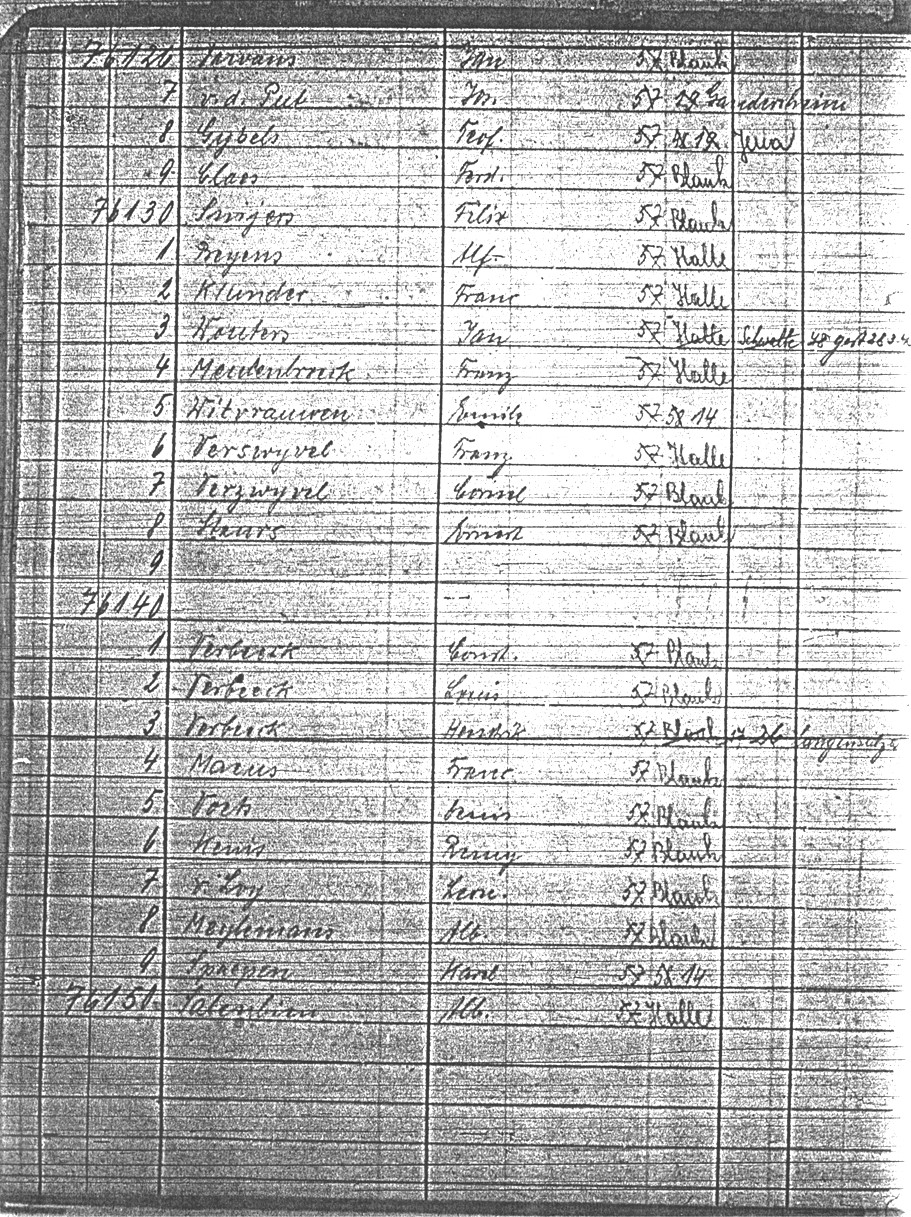 76126 Vervans Jan 57 Blank
7 v.d. Put Jos. 57 Gandersheim
8 Gybels Theof. 57 Jena
9 Claes Ferd. 57 Blank
76130 Smijers Felix 57 Blank
1 Beyens Alf. 57 Halle
2 Klunder Franc 57 Halle
3 Wouters Jan 57 Halle Schwelb 48 gest 28.3.4
4 Meulenbroek Franz 57 Halle
5 Witvrauwen Emile 57 58 14
6 Verswyvel Franz 57 Halle
7 Verzwyvel Cornel 57 Blank
8 Steurs Ernest 57 Blank
9
76140
1 Verbeeck Const. 57 Blank
2 Verbeeck Louis 57 Blank
3 Verbeeck Hendrik 57 Blank 17 26 Langensalza
4 Marius Franc 57 Blank
5 Vock Louis 57 Blank
6 Henis Remy 57 Blank
7 v. Loy Leon. 57 Blank
8 Meylemans Alb. 57 Blank
9 Spaepen Karel 57 58 14
76150 Salembien Alb. 57 Halle